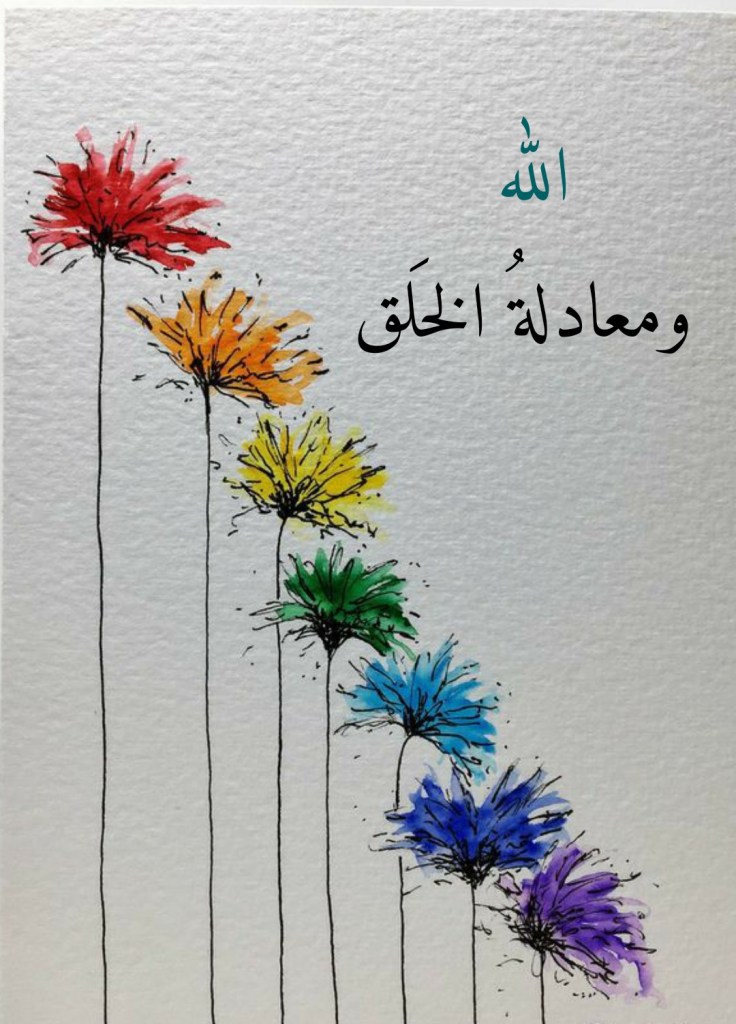 الله
ومعادلةُ الخلَق